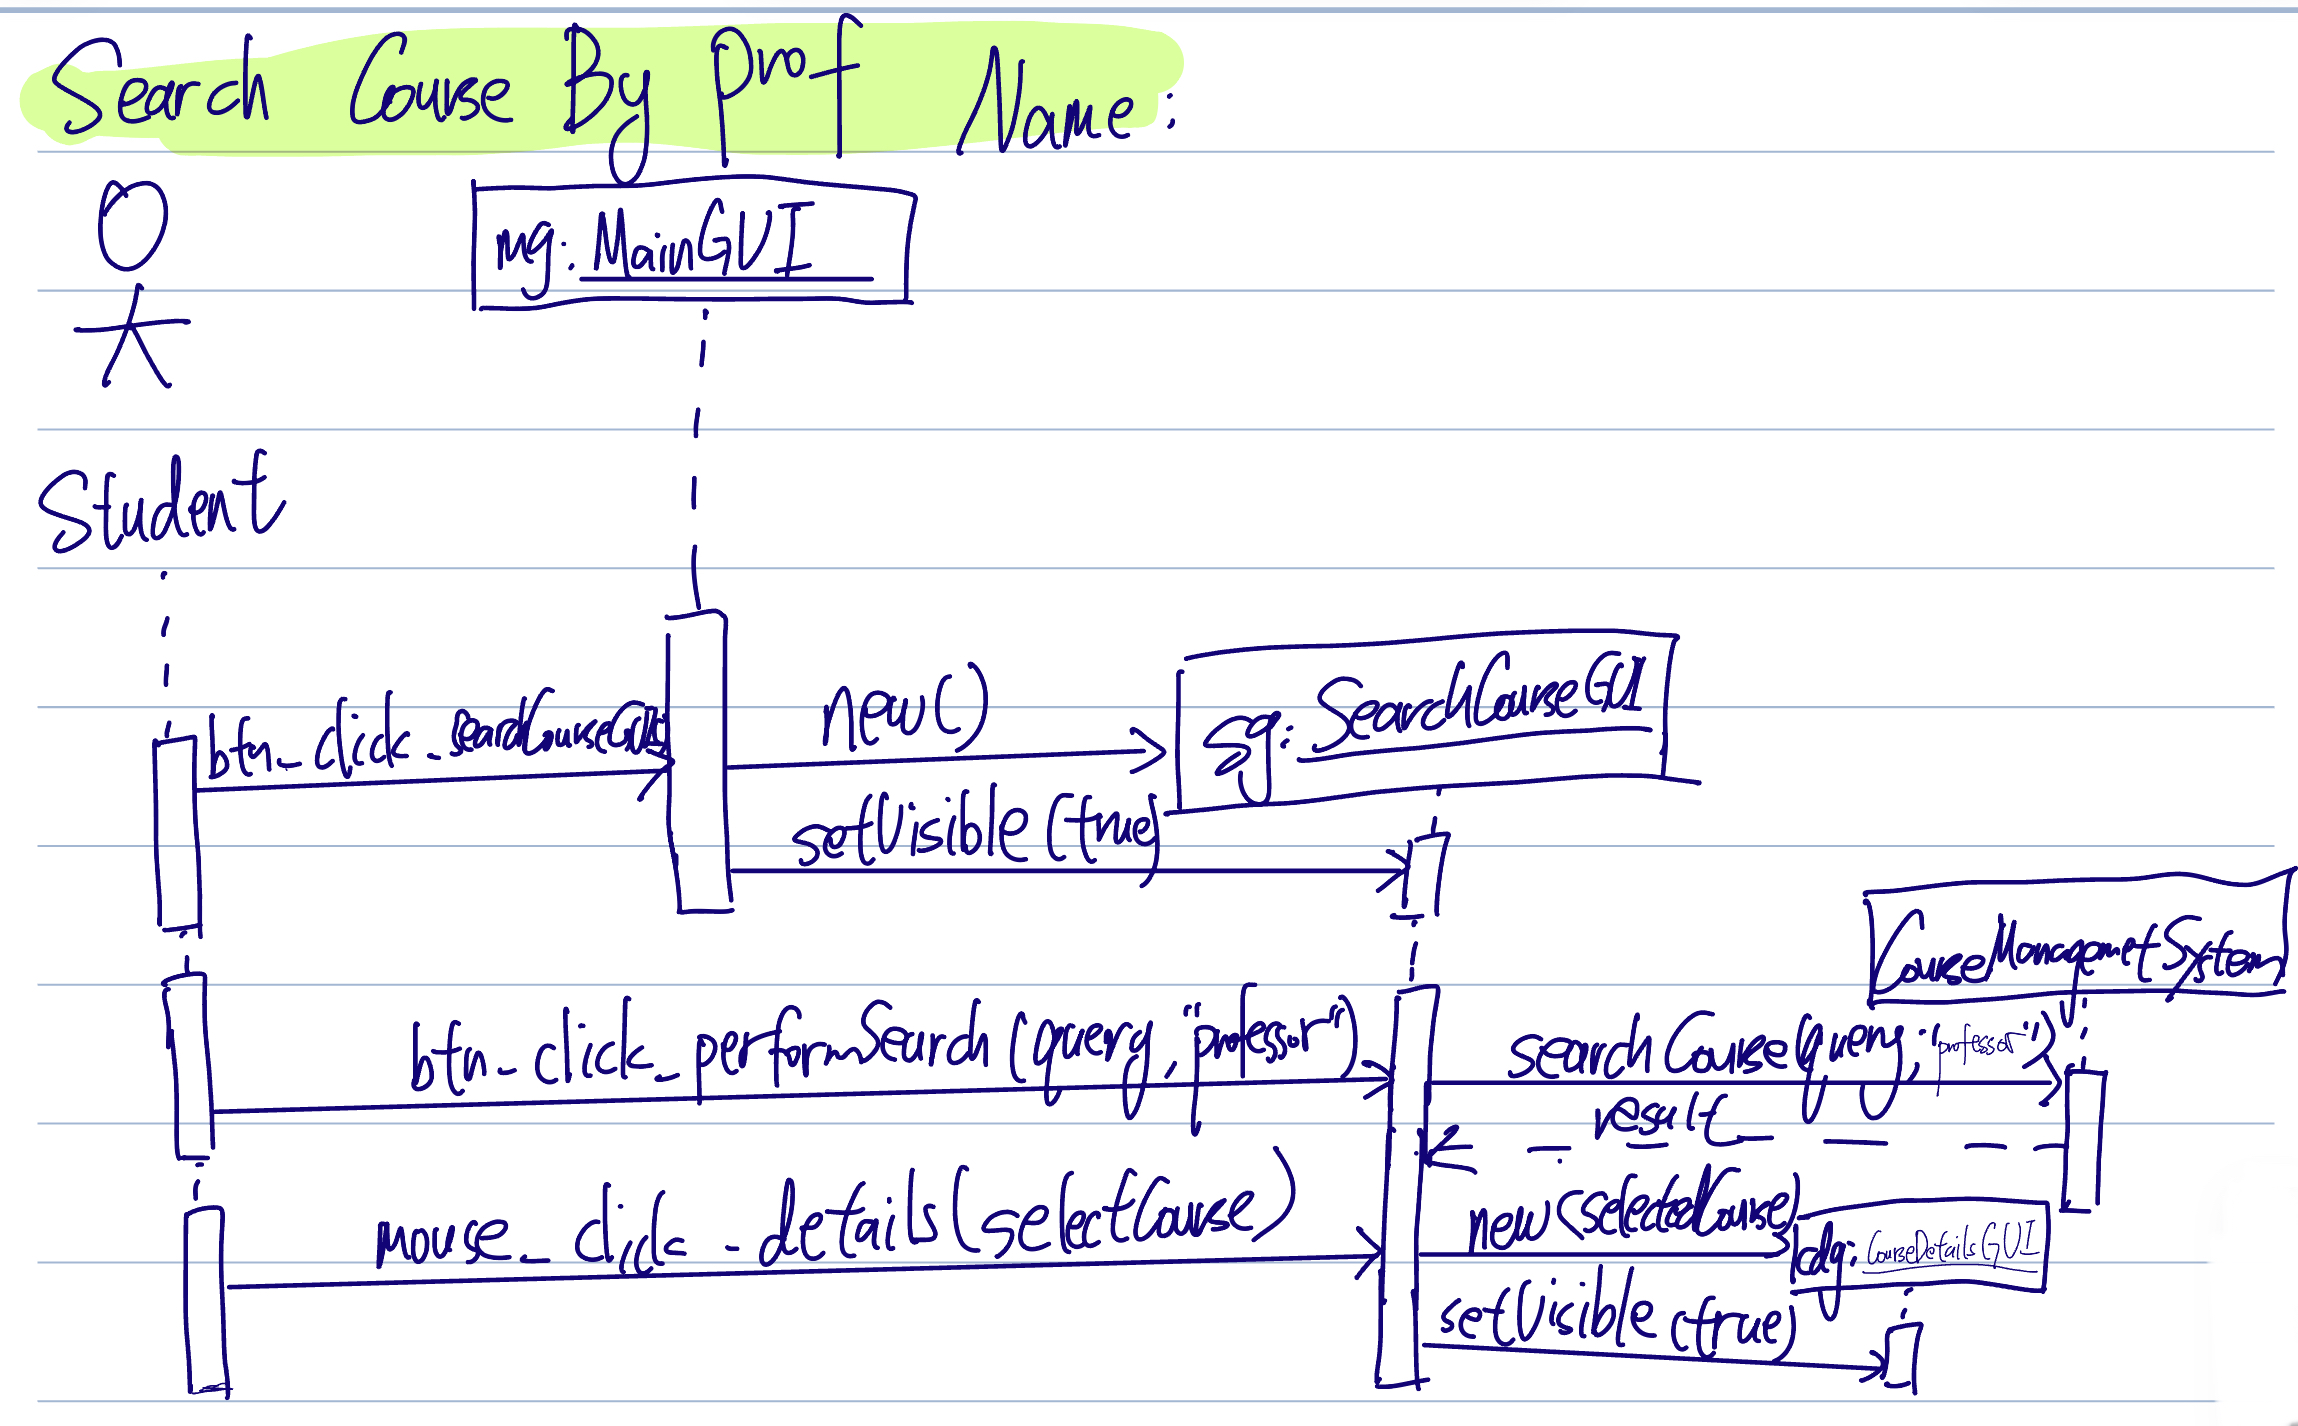 Search Course By prof Name:
mg: MainGUI
Student
btn_click_searchCourseGUI()
new()
sg: SearchCourseGUI
setVisible (true)
CourseManagemetSystem
btn_click_performSearch (query, "professor")
searchCourse(query, "professor")
result
mouse_click_details(selectCourse)
new(selectedCourse)
cdg: CourseDetailsGUI
setVisible (true)